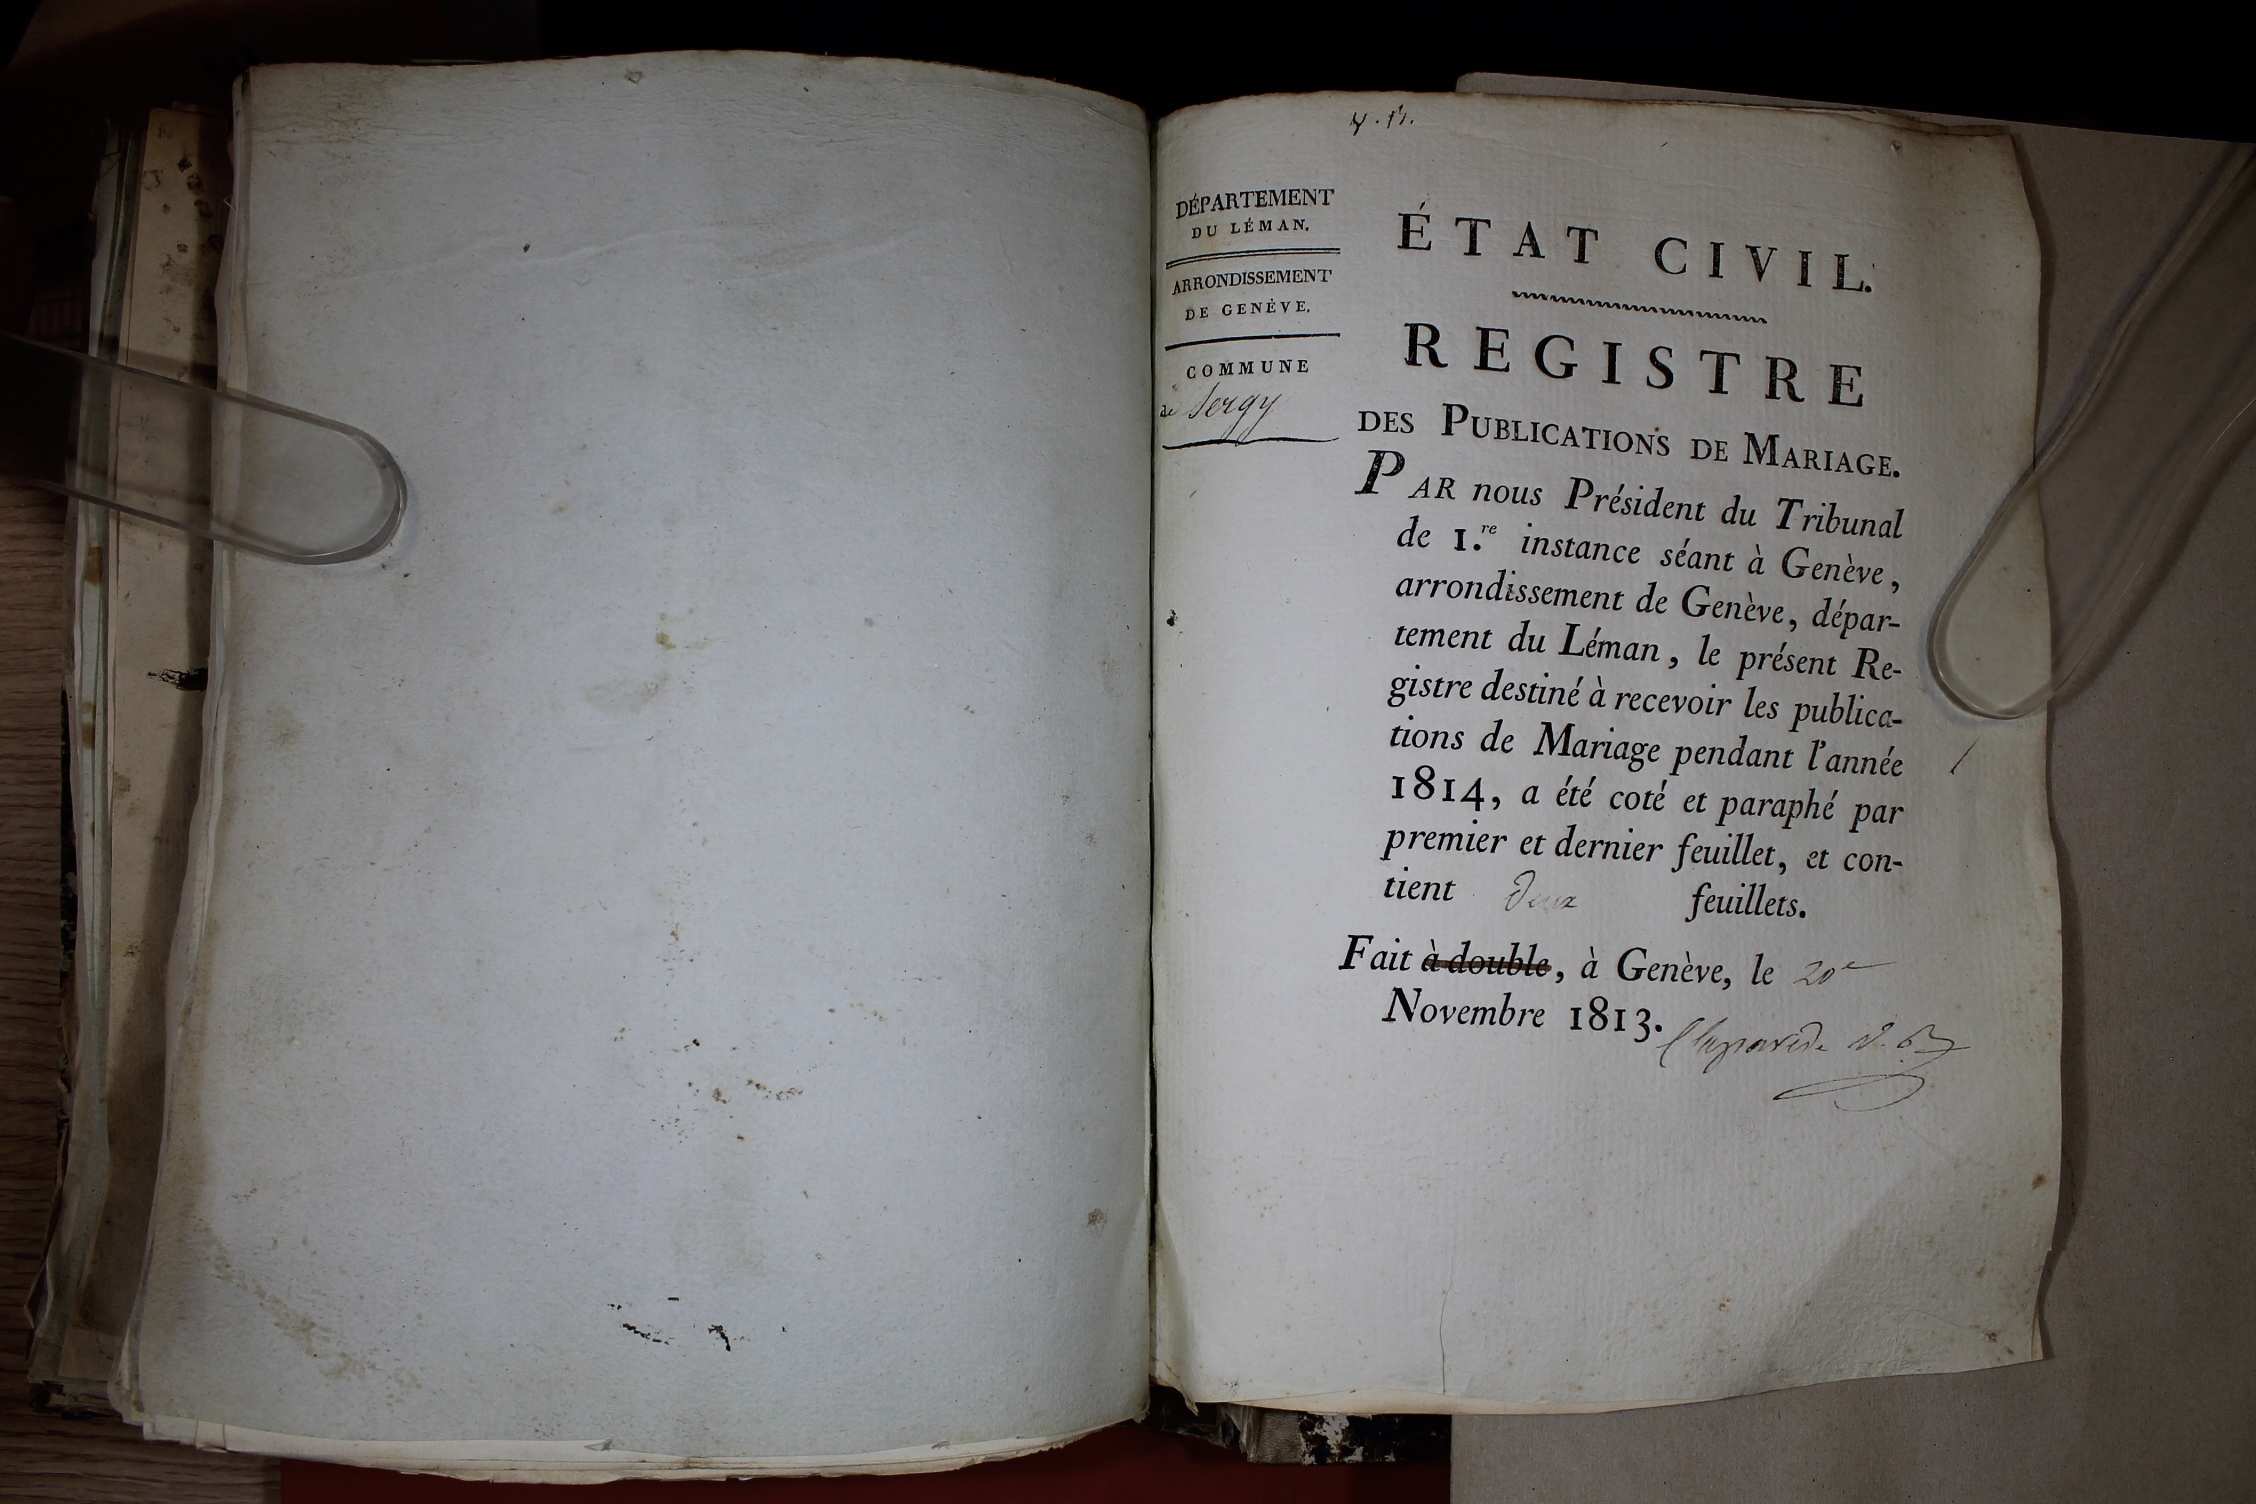 DÉPARTEMENT
DU LÉMAN.
ARRONDISSEMENT
DE GENÈVE.
COMMUNE
de Sergy
ÉTAT CIVIL.
REGISTRE
DES PUBLICATIONS DE MARIAGE.
PAR nous Président du Tribunal
de 1.re instance séant à Genève,
arrondissement de Genève, dépar-
tement du Léman, le présent Re-
gistre destiné à recevoir les publica-
tions de Mariage pendant l'année
1814, a été coté et paraphé par
premier et dernier feuillet, et con-
tient Deux feuillets.
Fait à double, à Genève, le 20e
Novembre 1813.
Claparede